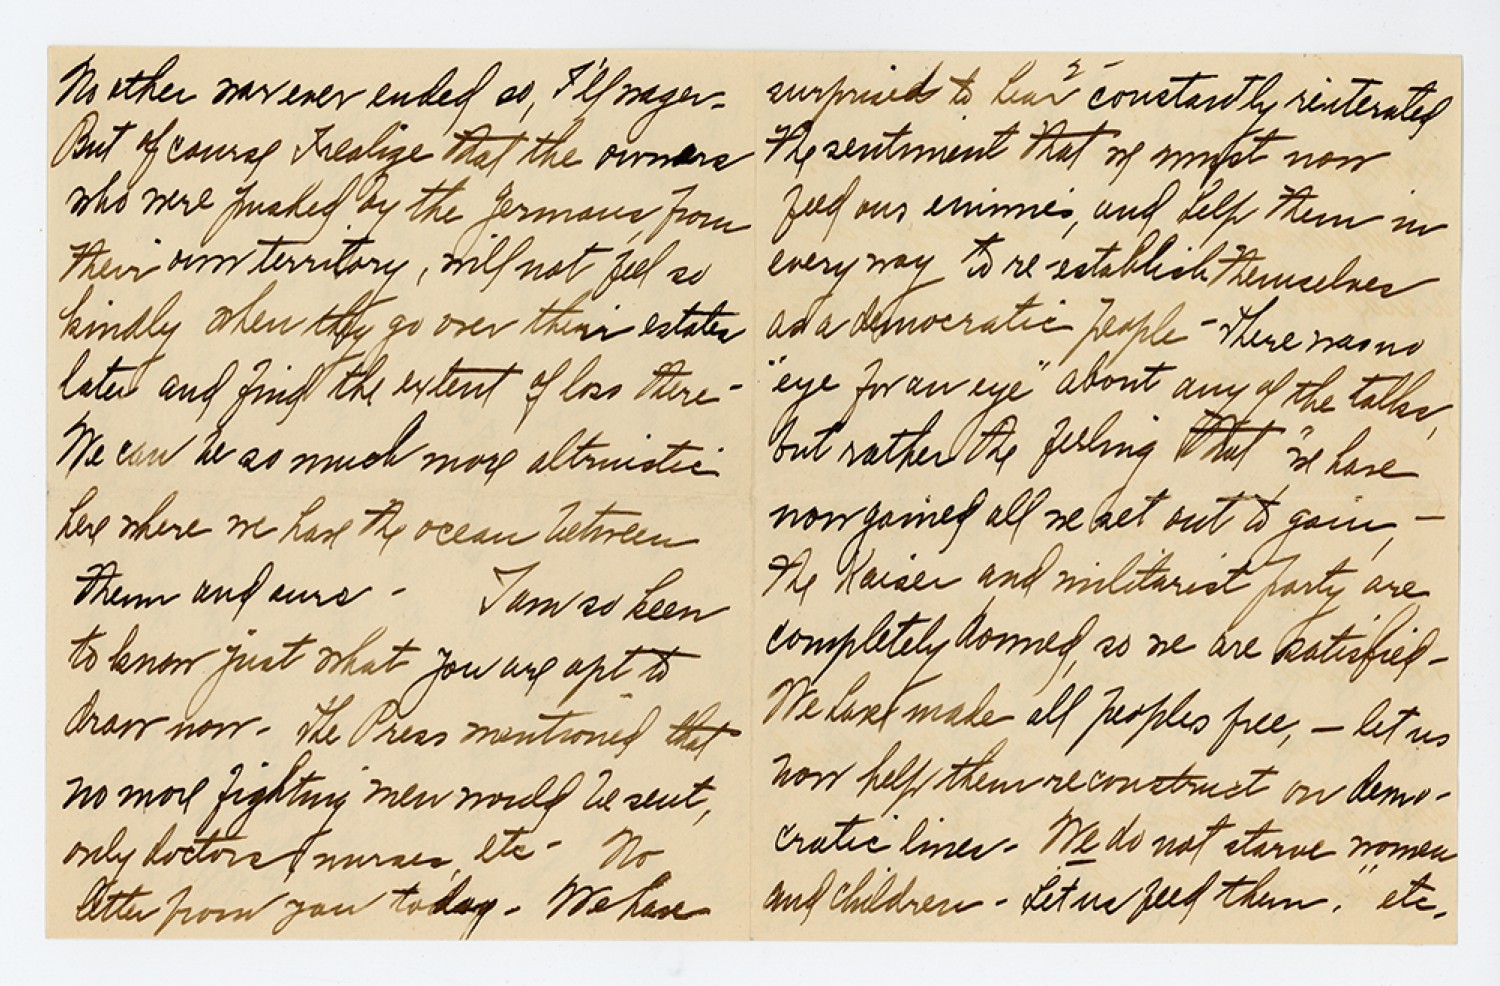 No other war ever ended so, I'll wager-
But of course I realize that the owners
who were pushed by the Germans, from
their own territory, will not feel so
kindly when they go over their estates
later and find the extent of loss there-
We can be so much more altruistic
here where we have the ocean between
them and ours - I am so keen
to know just what you are apt to
draw now - The Press mentioned that
no more fighting men would be sent,
only doctors, nurses, etc - No
letter from you today - We have
2-
surprised to hear constantly reiterated
the sentiment that we must now
feed our enimies, and help them in
every way to re-establish themselves
as a democratic people - There was no
"eye for an eye" about any of the talks,
but rather the feeling that "we have
now gained all we set out to gain, -
the Kaiser and militarist party are
completely downed, so we are satisfied -
We have made all peoples free, - let us
now help them reconstruct on demo-
cratic lines - We do not starve women
and children - Let us feed them." etc.